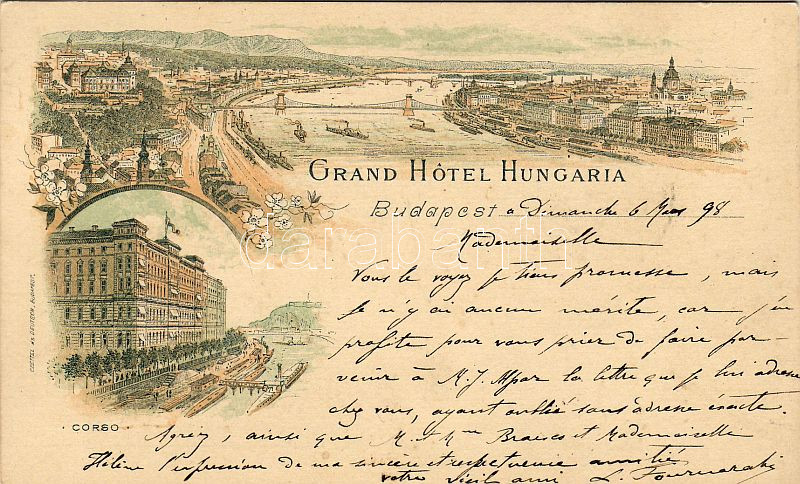 GRAND HÔTEL HUNGARIA
Budapest a Dimanche 6 Mars 98
Mademoiselle
Vous le voyez je tiens promesse, mais
je n'y ai aucun mérite, car j'en
profite pour vous prier de faire par-
venir à M. J. la lettre que je lui adresse
chez vous, ayant oublié sans adresse exacte.
CORSO
Agréez, ainsi que M. & Mme et Mademoiselle
Hélène l'expression de ma sincère et respectueuse amitié
votre vieil ami L.
darabanth